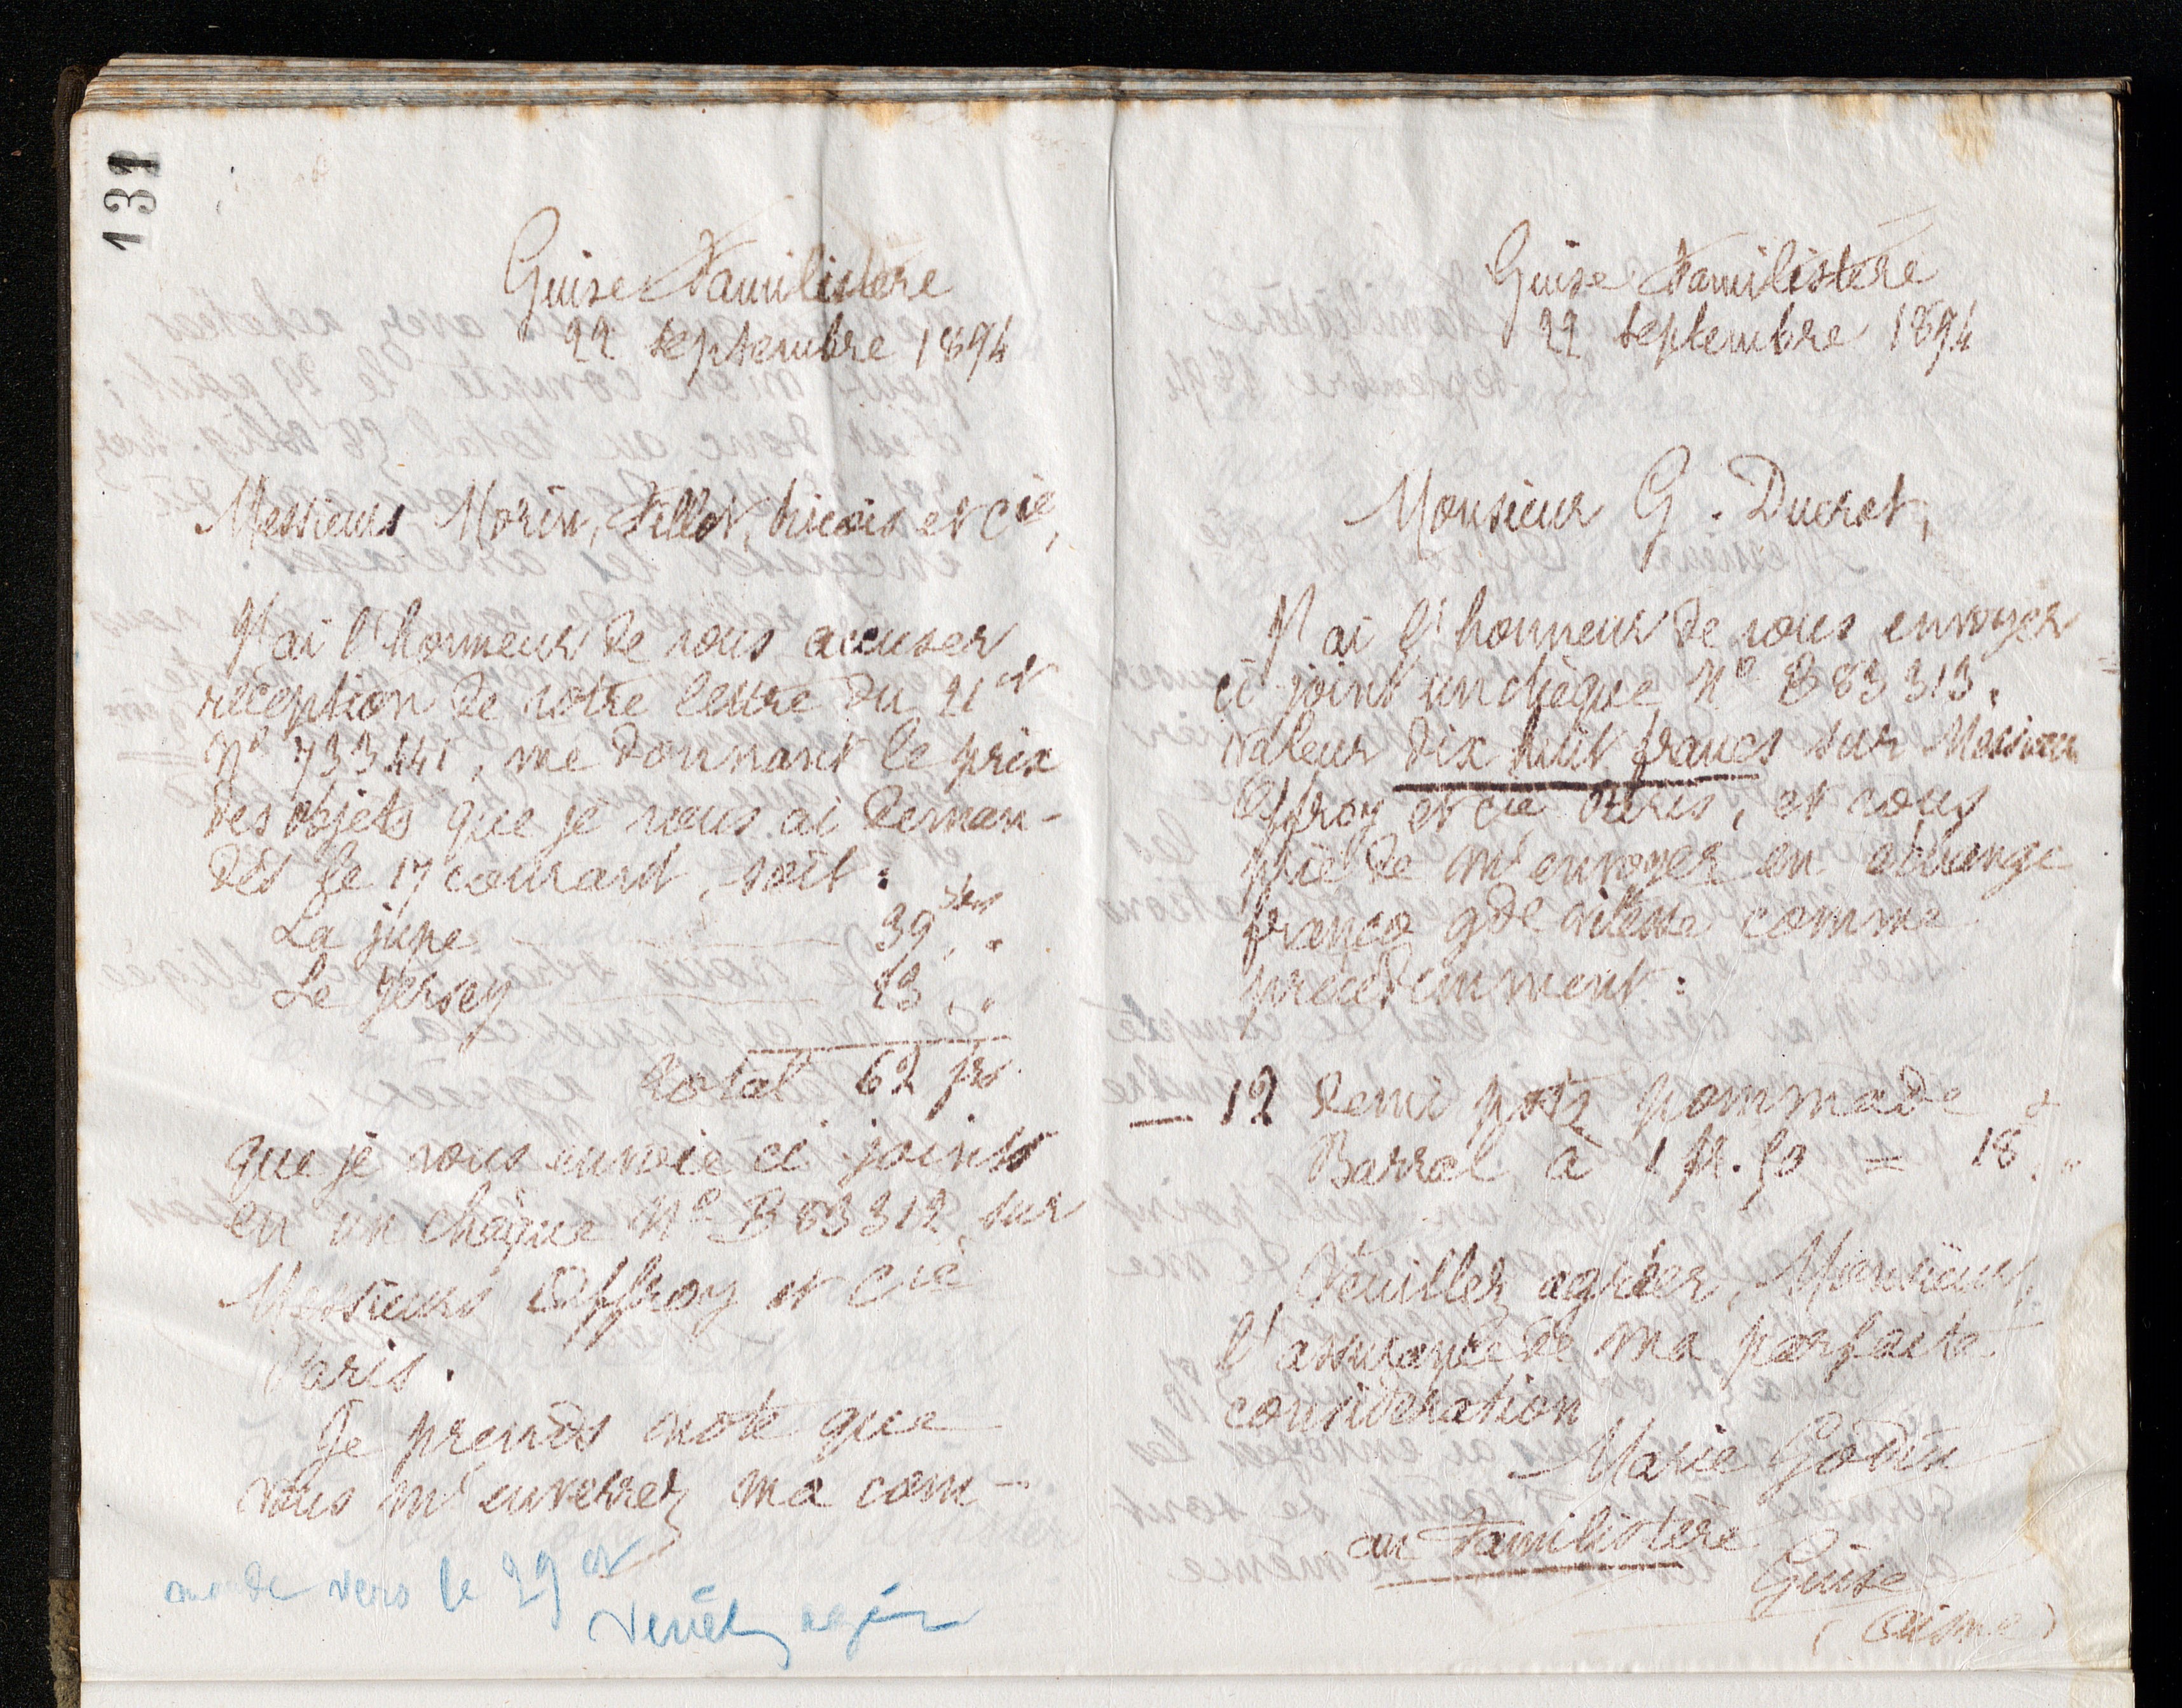 131
Guise Familistère
22 septembre 1894
Messieurs Morin, Fillot, Ricois et Cie,
J'ai l'honneur de vous accuser
réception de votre lettre du 21 ct
No 733441, me donnant le prix
des objets que je vous ai deman-
dés le 17 courant, soit :
La jupe 39 "
Le jersey 23 "
total 62 frs
que je vous envoie ci-joints
en un chèque No B83312 sur
Messieurs Offroy et Cie
Paris.
Je prends note que
vous m'enverrez ma com-
mande vers le 29 ct
Veuillez agréer
Guise Familistère
22 septembre 1894
Monsieur G. Ducrot,
J'ai l'honneur de vous envoyer
ci-joint un chèque No B83313.
valeur dix huit francs sur Messieurs
Offroy et Cie Paris, et vous
prie de m'envoyer en échange
franco gde vitesse comme
précédemment :
— 12 demi pots pommade
Barral à 1 fr. 50 = 18 "
Veuillez agréer, Monsieur,
l'assurance de ma parfaite
considération
Marie Godin
au Familistère
Guise
(Aisne)